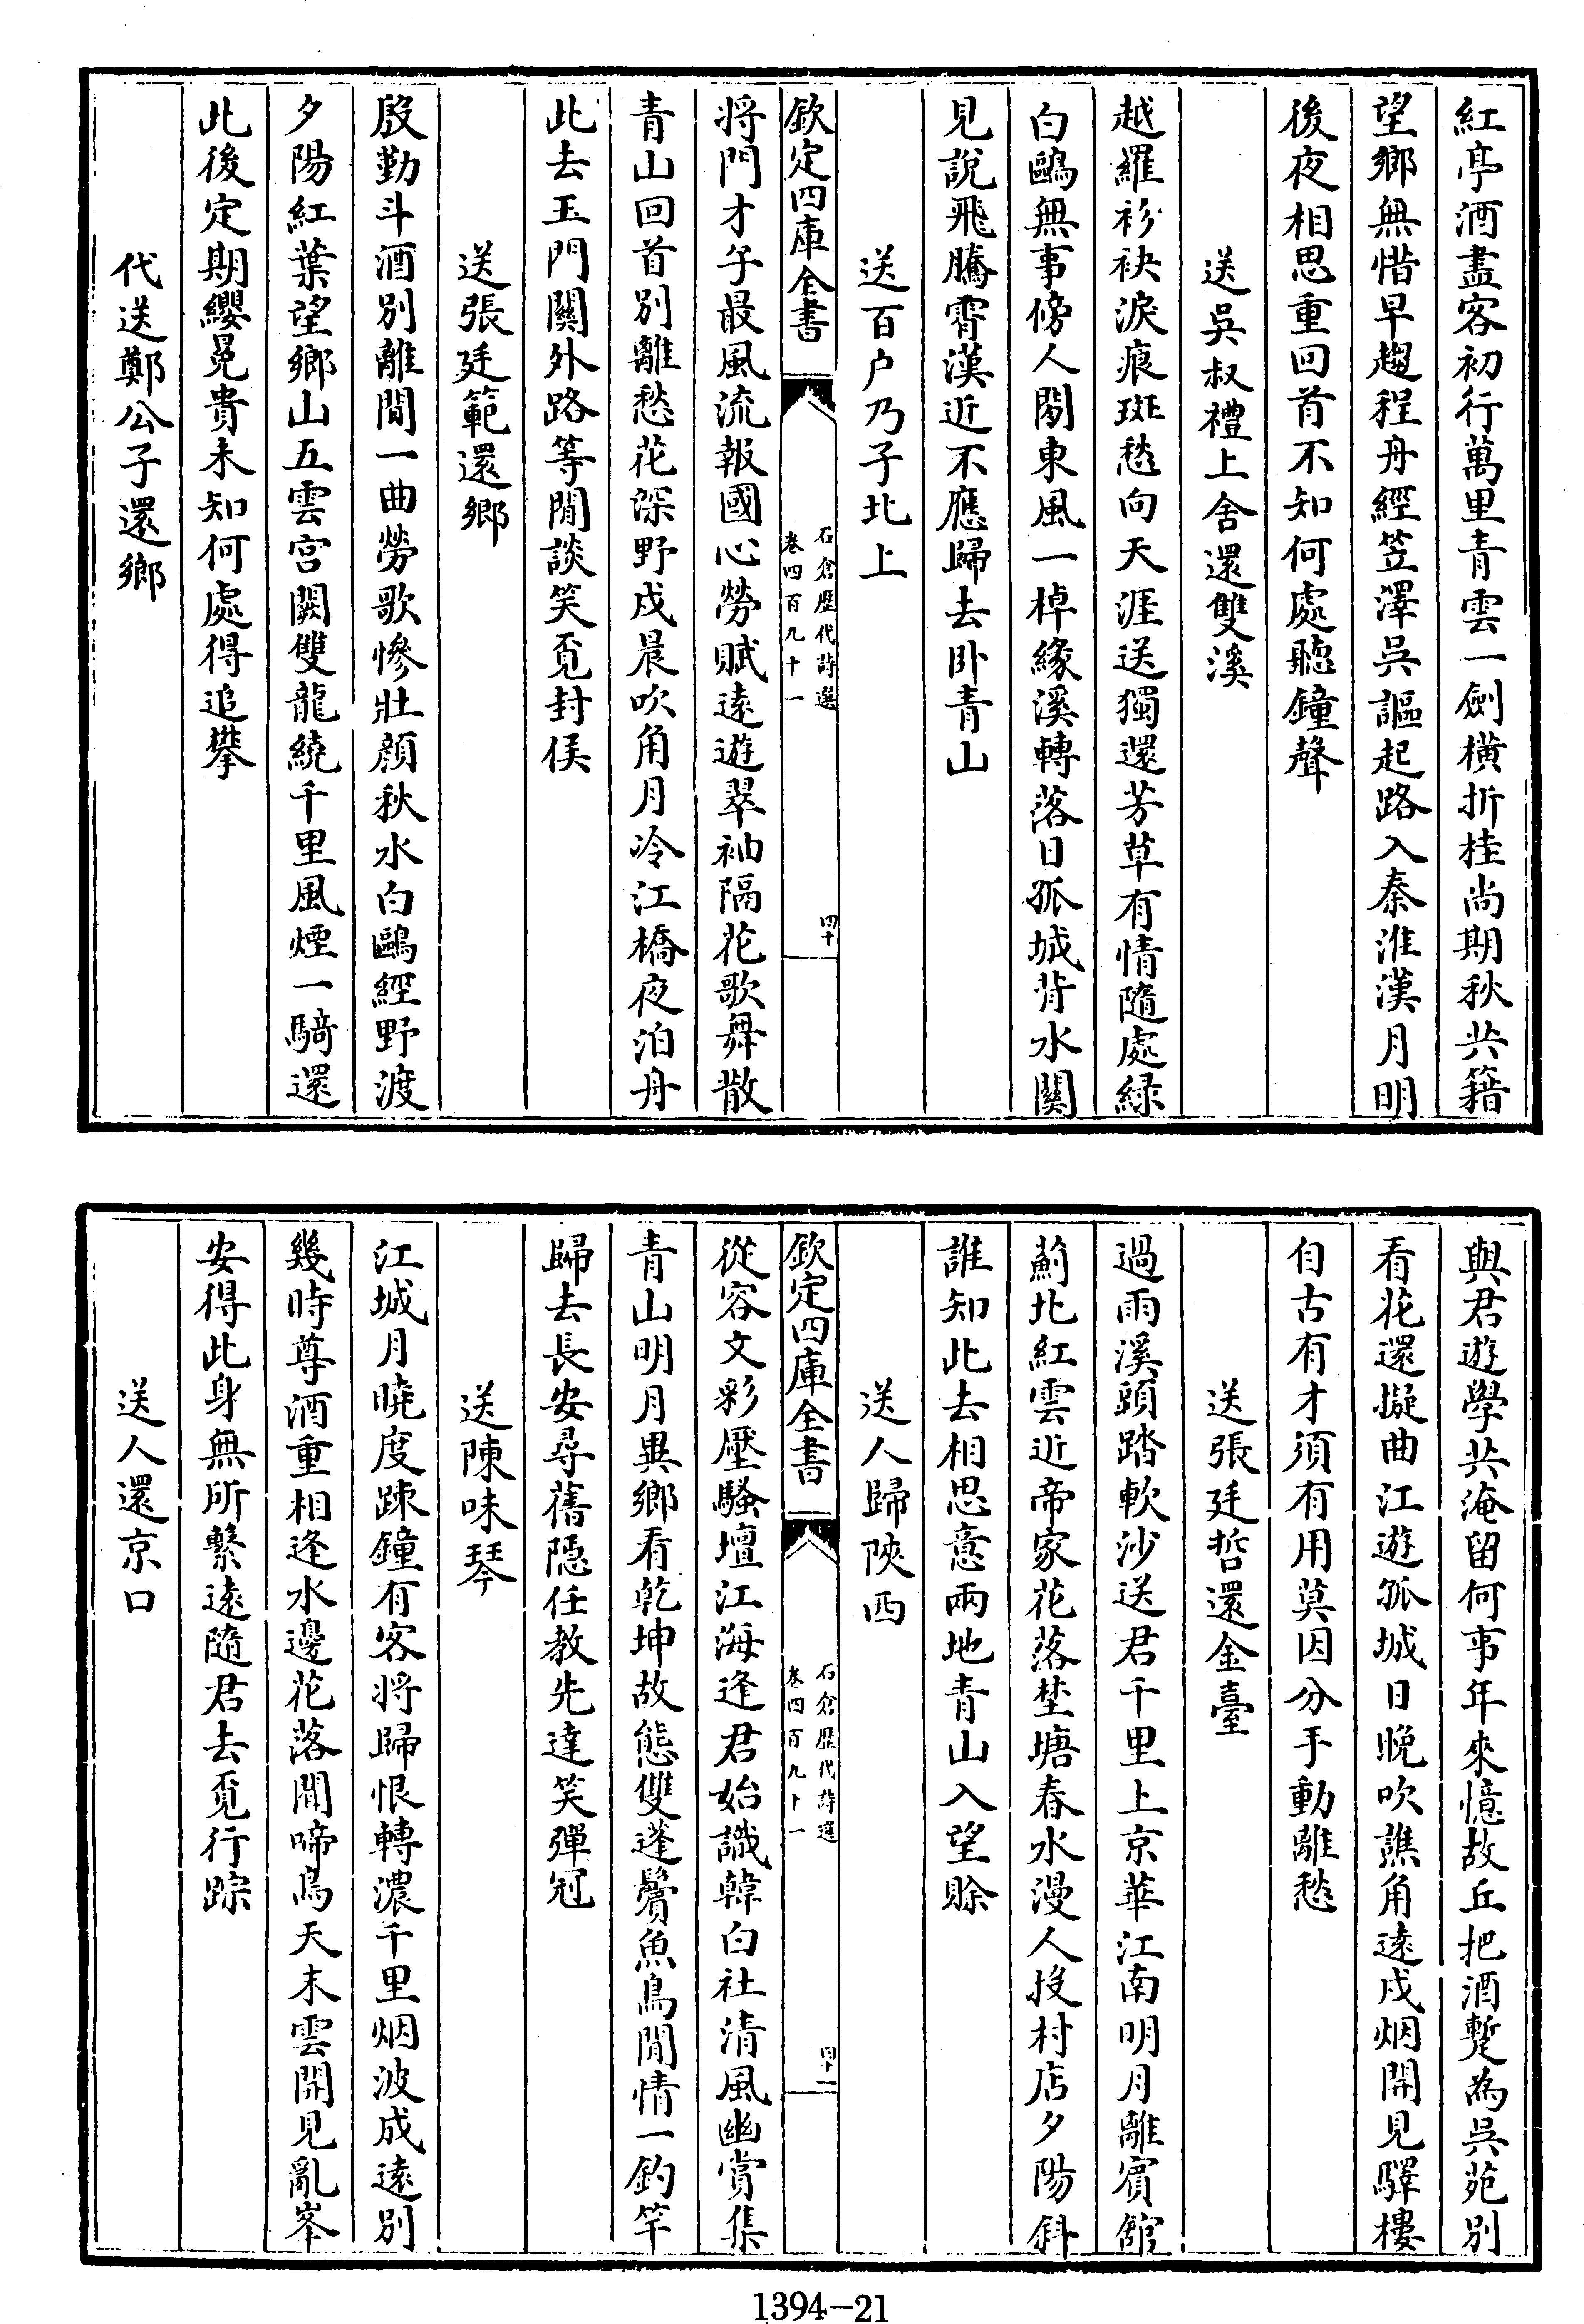 紅亭酒盡客初行萬里青雲一劍橫折桂尚期秋共籍
望鄉無惜早趨程舟經笠澤吳謳起路入秦淮漢月明
後夜相思重回首不知何處聽鐘聲
送吳叔禮上舍還雙溪
越羅衫袂淚痕斑愁向天涯送獨還芳草有情隨處緑
白鷗無事傍人閒東風一棹緣溪轉落日孤城背水關
見說飛騰霄漢近不應歸去卧青山
送百户乃子北上
欽定四庫全書
石倉歷代詩選
卷四百九十一
四十
將門才子最風流報國心勞賦遠遊翠袖隔花歌舞散
青山回首別離愁花深野戍晨吹角月冷江橋夜泊舟
此去玉門關外路等閒談笑覓封侯
送張廷範還鄉
殷勤斗酒別離間一曲勞歌慘壯顔秋水白鷗經野渡
夕陽紅葉望鄉山五雲宫闕雙龍繞千里風煙一騎還
此後定期纓冕貴未知何處得追攀
代送鄭公子還鄉
與君遊學共淹留何事年來憶故丘把酒蹔為吳苑別
看花還擬曲江遊孤城日晚吹譙角遠戍烟開見驛樓
自古有才須有用莫因分手動離愁
送張廷哲還金臺
過雨溪頭踏軟沙送君千里上京華江南明月離賓舘
薊北紅雲近帝家花落埜塘春水漫人投村店夕陽斜
誰知此去相思意兩地青山入望賖
送人歸陝西
欽定四庫全書
石倉歷代詩選
卷四百九十一
四十一
從容文彩壓騷壇江海逢君始識韓白社清風幽賞集
青山明月異鄉看乾坤故態雙蓬鬢魚鳥閒情一釣竿
歸去長安尋舊隱任教先達笑彈冠
送陳味琴
江城月曉度踈鐘有客將歸恨轉濃千里烟波成遠別
幾時尊酒重相逢水邊花落聞啼鳥天末雲開見亂峯
安得此身無所繫遠隨君去覓行踪
送人還京口
1394—21